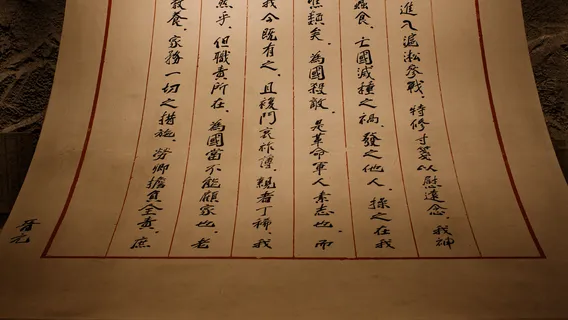 進入滬淞參戰.特修寸箋以慰遠念.我神
蠶食.亡國滅種之禍.發之他人.操之在我
噍類矣.為國殺敵.是革命軍人素志也.而
我今既有之.且後門衰祚薄.親者丁稀.我
然乎.但職責所在.為國當不能顧家也.老
教養.家務一切之措施.勞卿擔負全責.庶
晉元